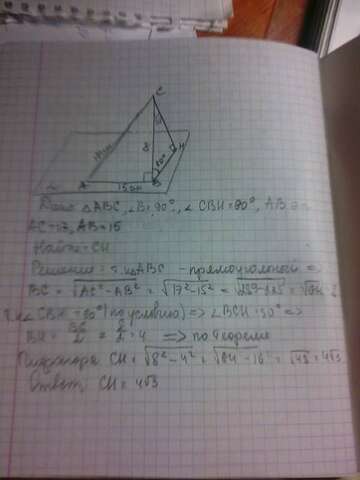 C
17см
8
60°
H
A
15см
B
Дано: △ABC, ∠B=90°, ∠CBH=60°, AB ∈ α
AC=17, AB=15
Найти: CH
Решение: т.к. △ABC - прямоугольный =>
BC = √AC²-AB² = √17²-15² = √289-225 = √64 = 8
Т.к. ∠CBH = 60° (по условию) => ∠BCH=30° =>
BH = BC/2 = 8/2 = 4 => по теореме
Пифагора CH = √8²-4² = √64-16 = √48 = 4√3
Ответ: CH = 4√3